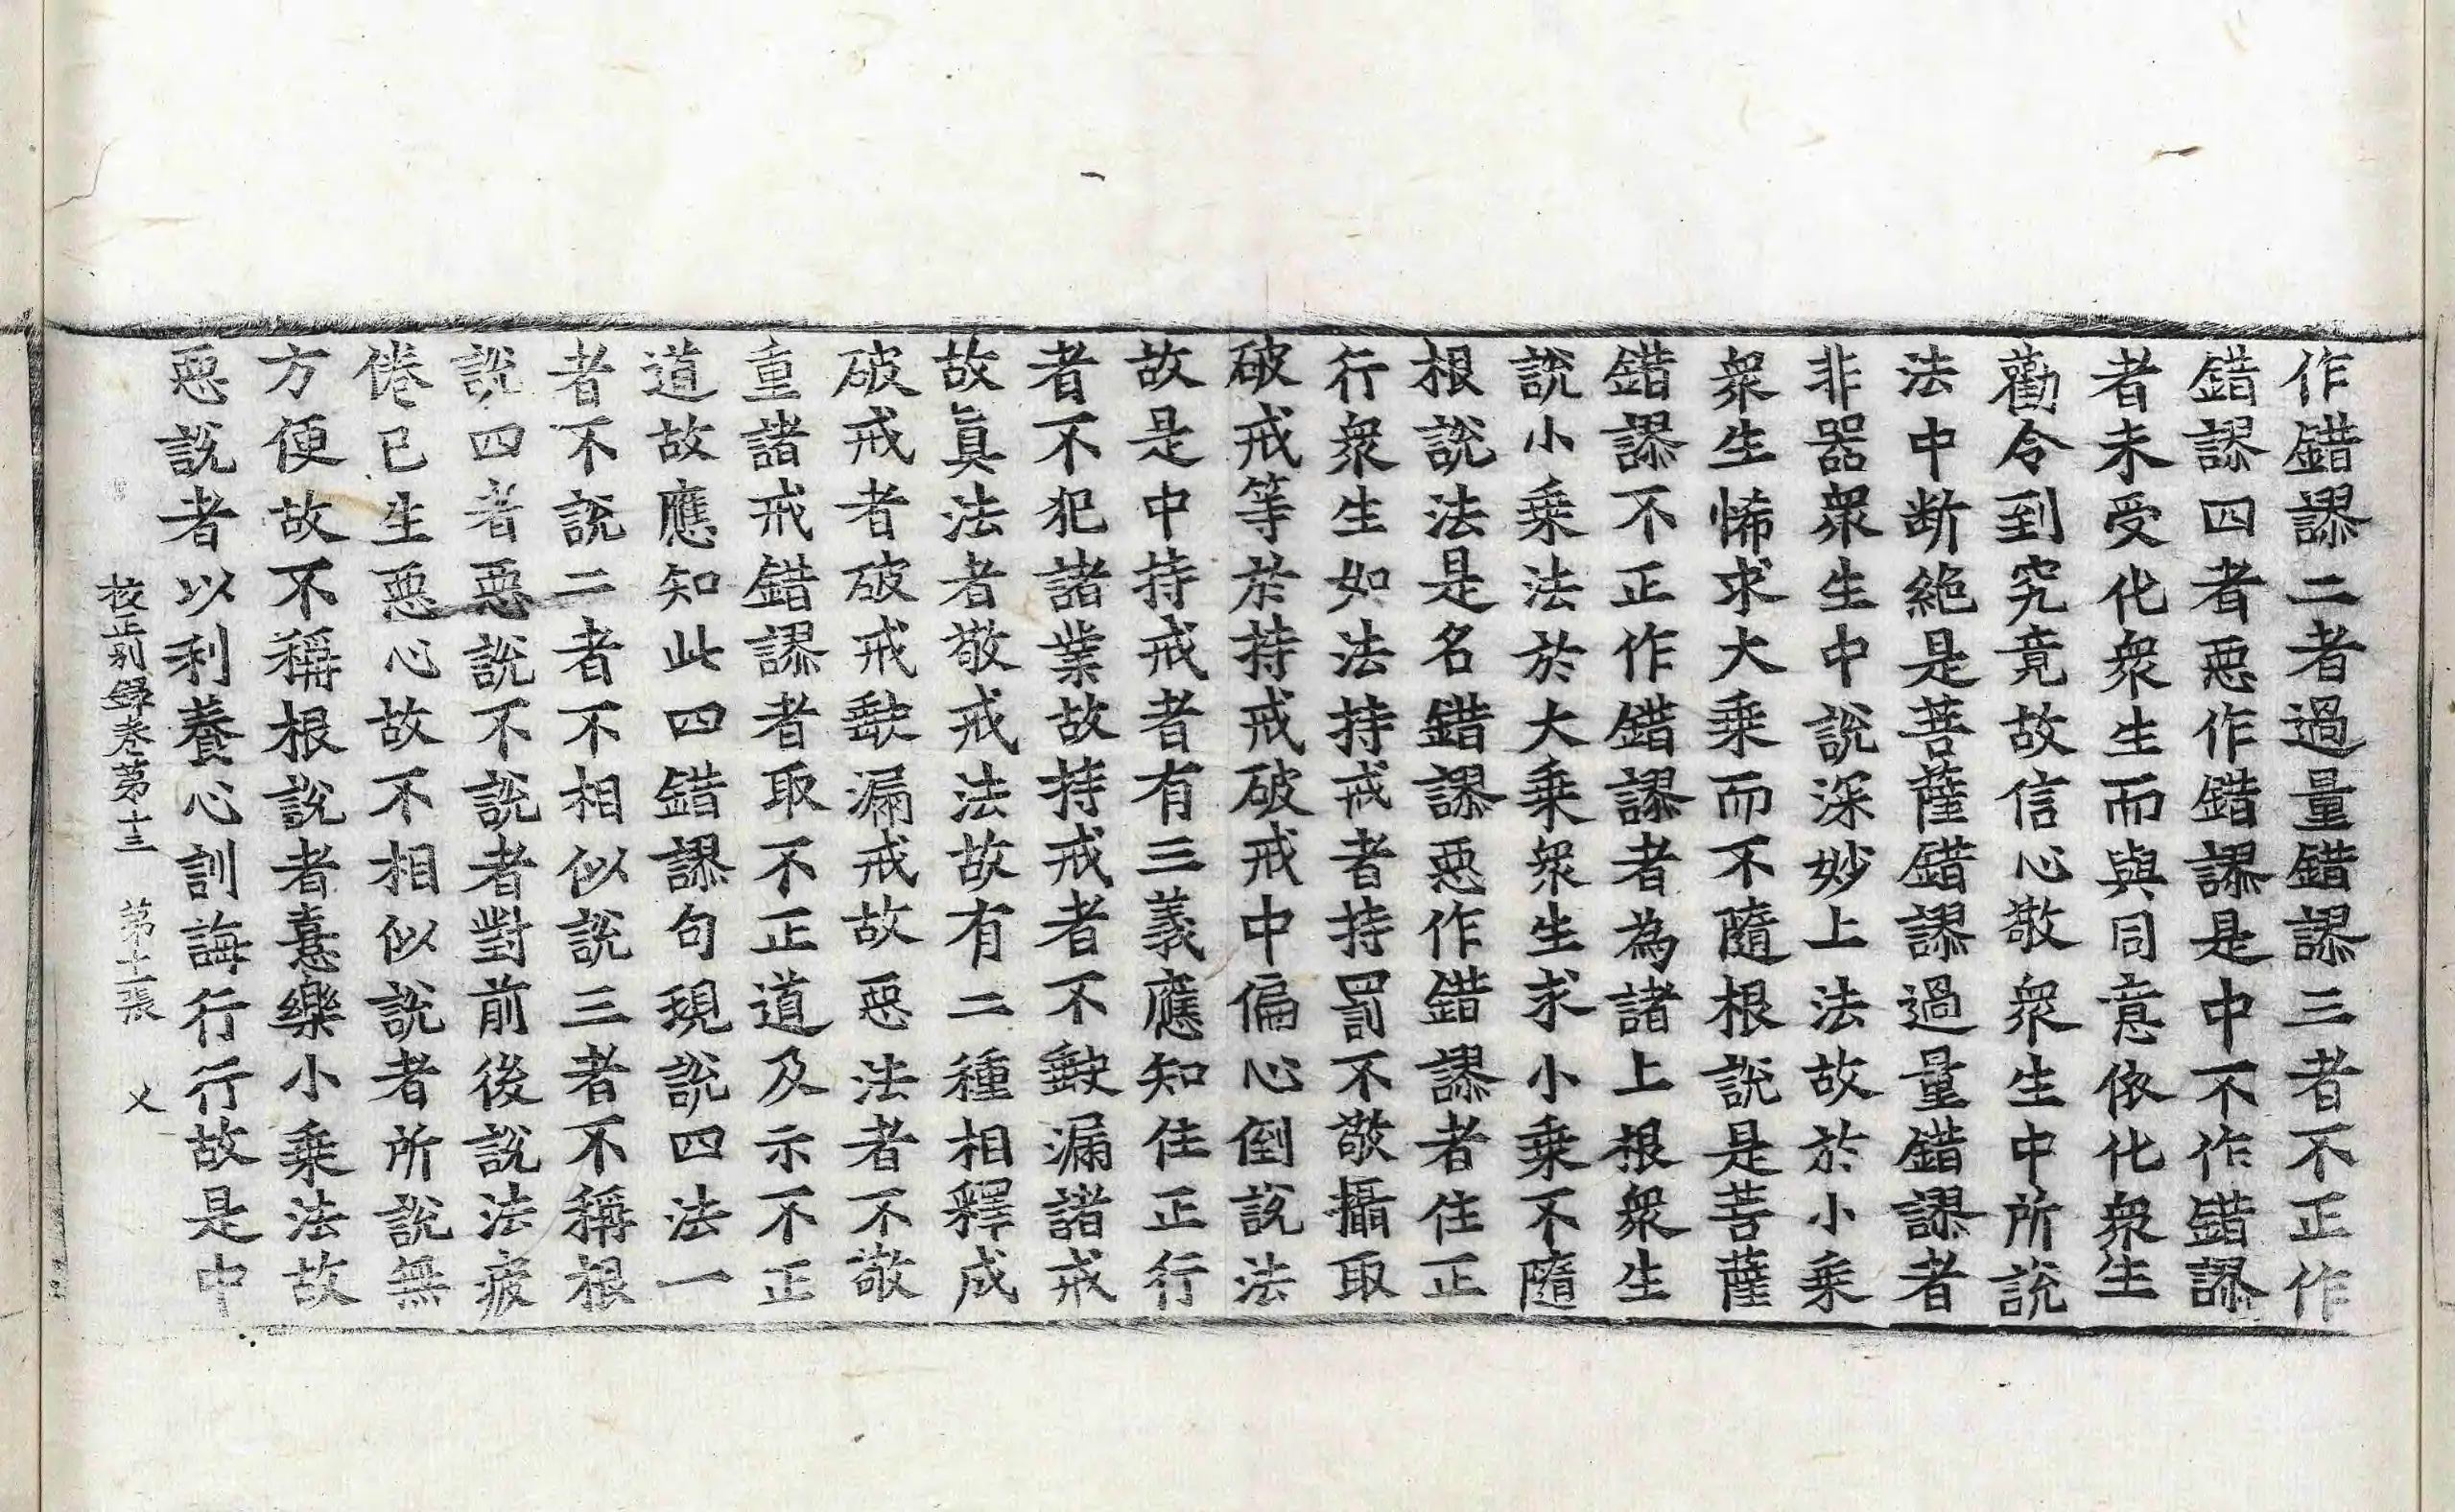 作錯謬二者過量錯謬三者不正作
錯謬四者惡作錯謬是中不作錯謬
者未受化衆生而與同意依化衆生
勸令到究竟故信心敬衆生中所說
法中断絶是菩薩錯謬過量錯謬者
非器衆生中說深妙上法故於小乘
衆生悕求大乘而不隨根說是菩薩
錯謬不正作錯謬者為諸上根衆生
說小乘法於大乘衆生求小乘不隨
根說法是名錯謬惡作錯謬者住正
行衆生如法持戒者持罰不敬攝取
破戒等於持戒破戒中偏心倒說法
故是中持戒者有三義應知住正行
者不犯諸業故持戒者不缺漏諸戒
故眞法者敬戒法故有二種相釋成
破戒者破戒缺漏戒故惡法者不敬
重諸戒錯謬者取不正道及示不正
道故應知此四錯謬句現說四法一
者不說二者不相似說三者不稱根
說四者惡說不說者對前後說法疲
倦已生惡心故不相似說者所說無
方便故不稱根說者憙樂小乘法故
惡說者以利養心訓誨行行故是中
校正别録卷第十三　第十二張　乂